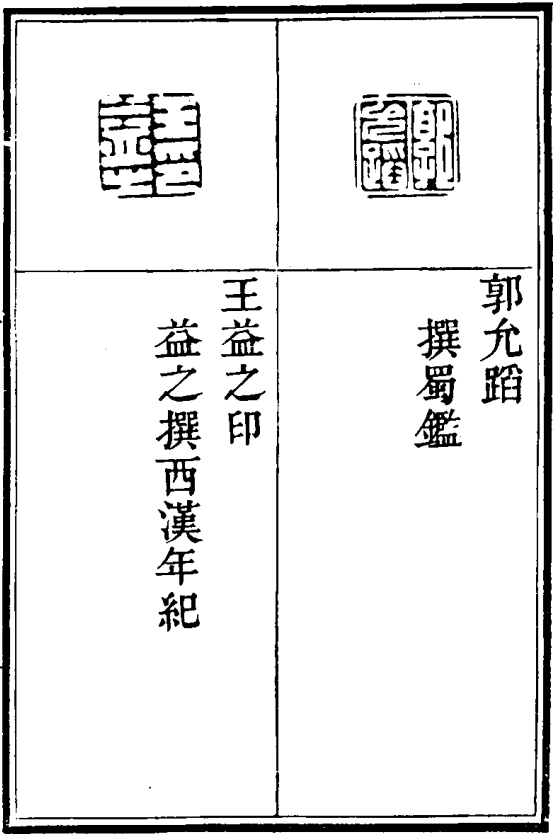 郭允蹈
郭允蹈
撰蜀鑑
王益之印
王益之印
益之撰西漢年紀